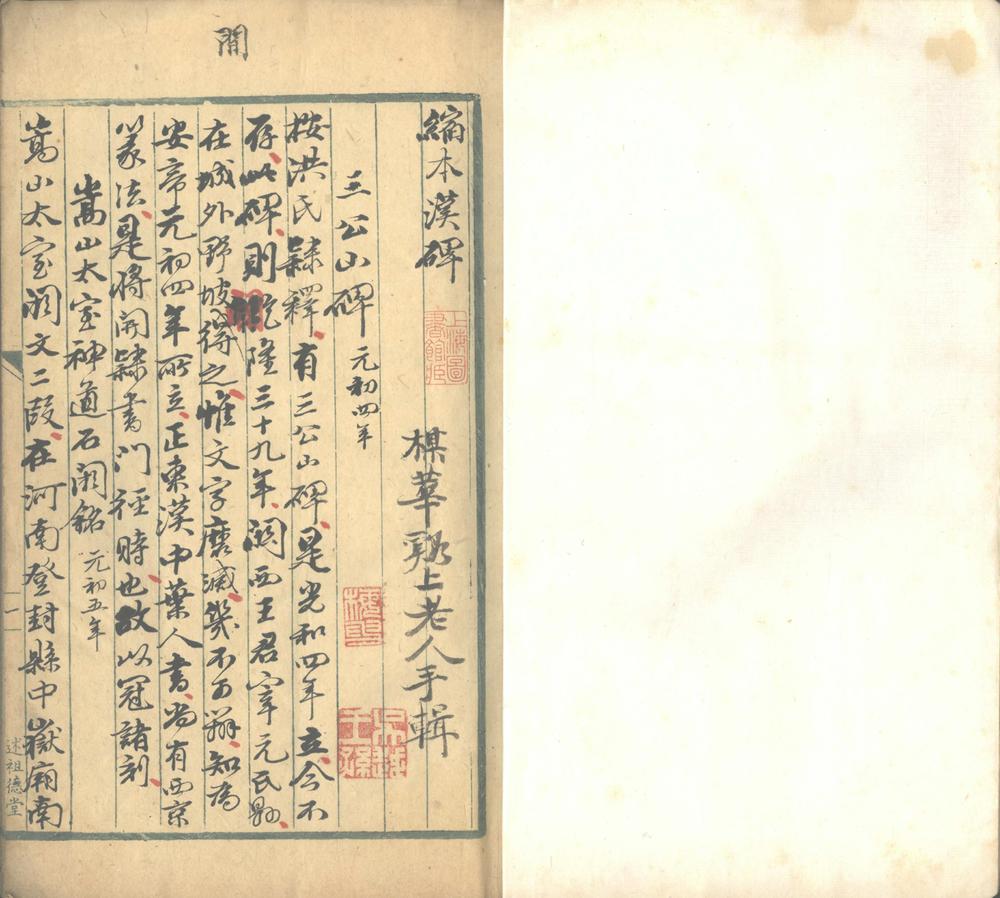 閒
縮本漢碑
上海圖書館藏
楳華谿上老人手輯
三公山碑 元初四年
梅谿
吳越王孫
按洪氏隸釋有三公山碑是光和四年立今不
存此碑則乾隆三十九年關西王君宰元氏縣
在城外野坡得之惟文字磨滅幾不可辨知為
安帝元初四年所立正東漢中葉人書尚有西京
篆法是將開隸書門徑時也故以冠諸刻
嵩山太室神道石闕銘 元初五年
嵩山太室闕文二段在河南登封縣中嶽廟南
一
述祖德堂